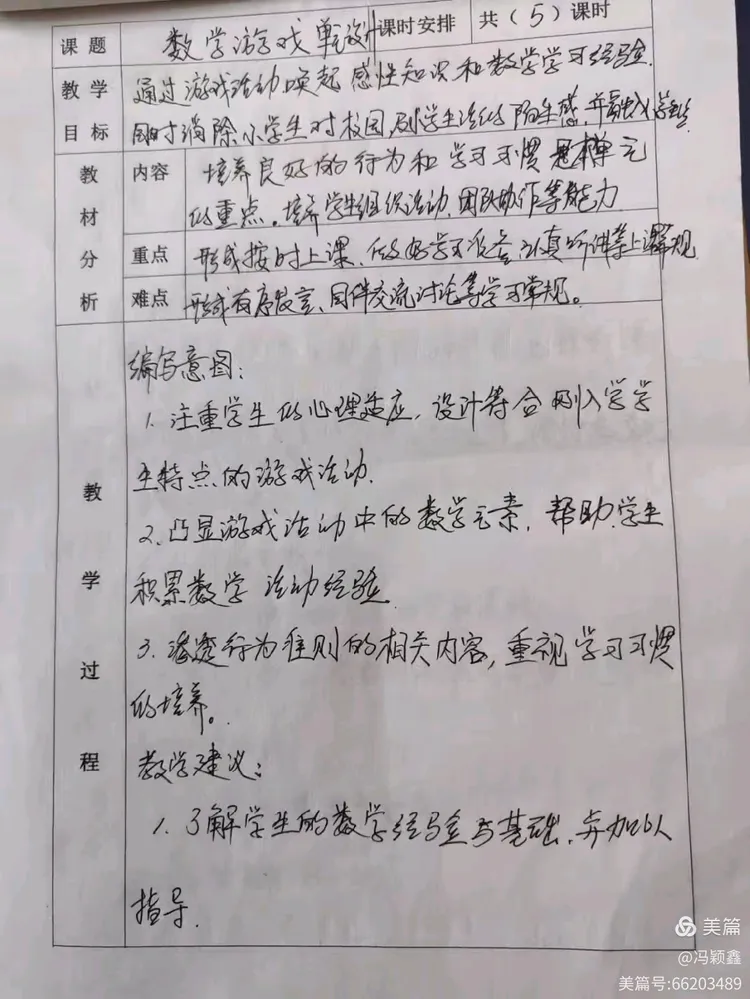 课题 数学游戏单设计 课时安排 共(5)课时
教学目标 通过游戏活动唤起感性知识和数学学习经验.
同时消除小学生对校园,小学生活的陌生感,并融入
教材分析 内容 培养良好的行为和学习习惯是本单元
的重点。培养学生组织活动、团队协作等能力
重点 形成按时上课、做好学习准备、认真听讲等上课常规
难点 形成有序发言、同伴交流讨论等学习常规。
教学过程
编写意图:
1. 注重学生的心理适应,设计符合刚入学学
生特点的游戏活动.
2、凸显游戏活动中的数学元素,帮助学生
积累数学活动经验
3. 渗透行为准则的相关内容,重视学习习惯
的培养。
教学建议:
1. 了解学生的数学经验与基础,并加以
指导.
美篇
@冯颖鑫
美篇号:66203489